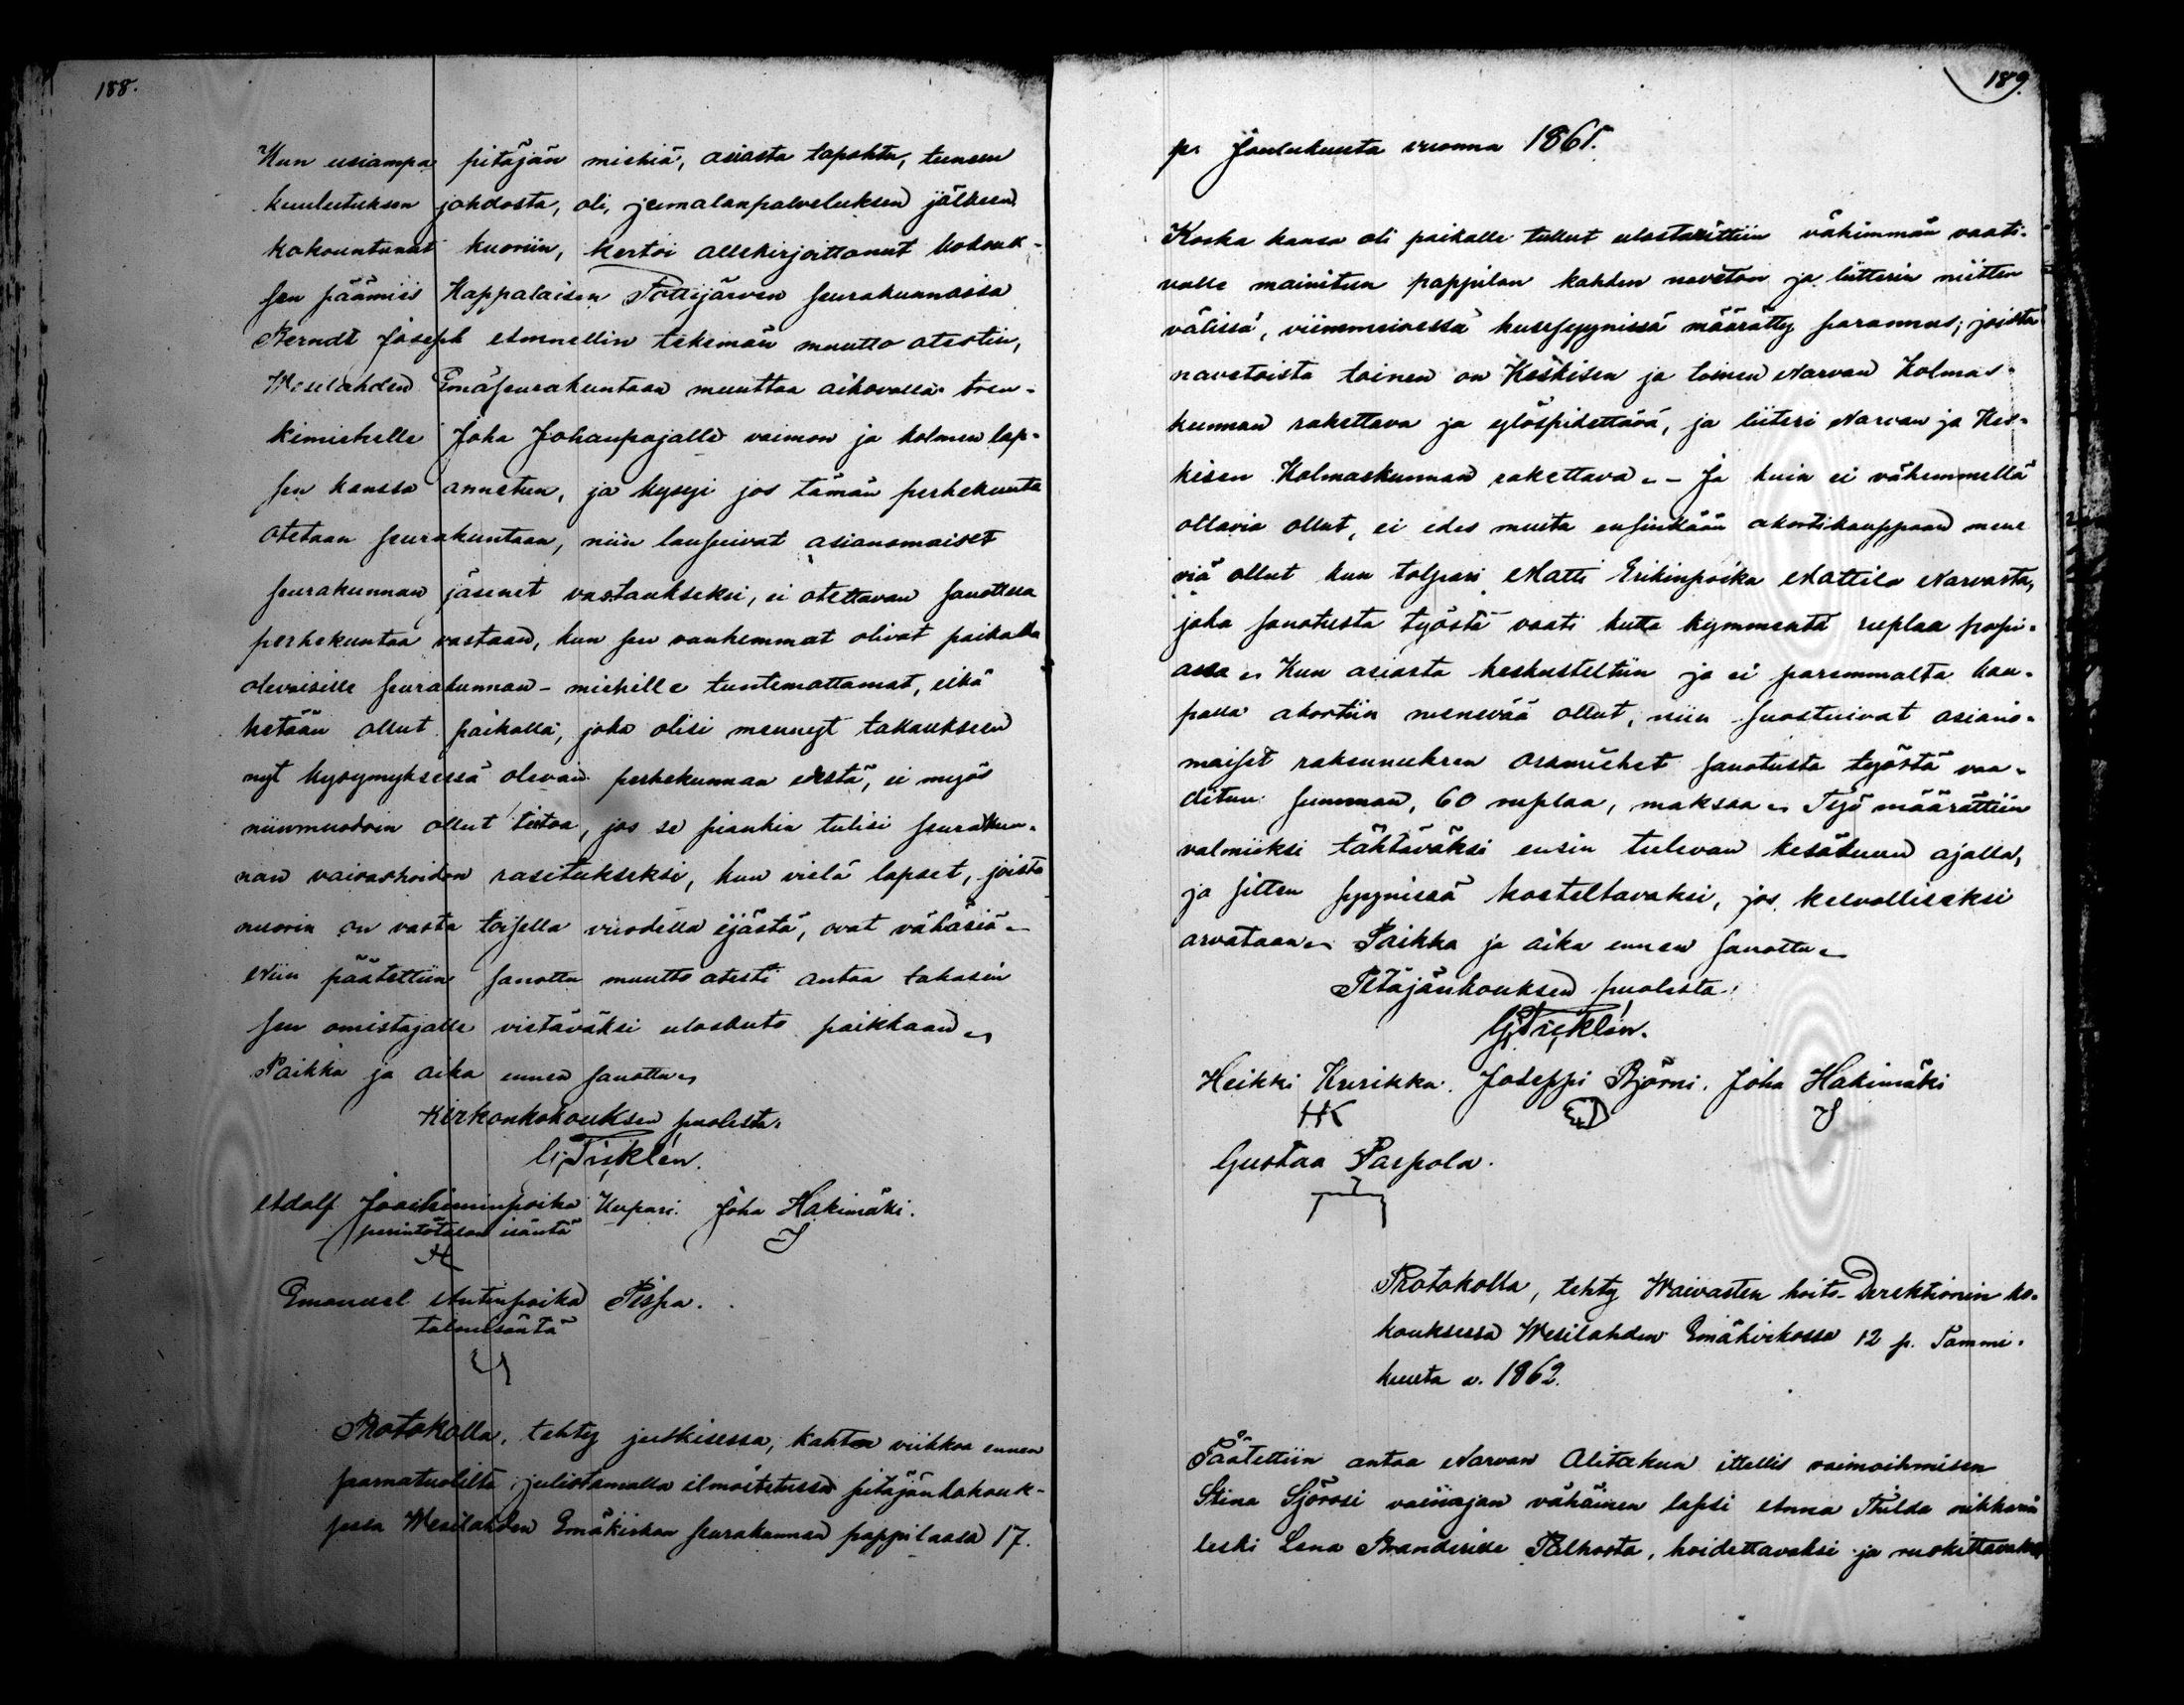 188.
Kun usiampa pitäjän miehiä, asiasta tapahtu, tunsen
kuulutuksen johdosta, oli, jumalanpalveluksen jälkeen
kokountunut kuoriin, kertoi allekirjoittanut kokouk-
sen päämies Kappalaisen Tottijärven seurakunnassa
Berndt Joseph Amnellin tekemän muutto atestin,
Wesilahden Emäseurakuntaan muuttaa aikovalla tren-
kimiehelle Joha Johanpojalle vaimon ja kolmen lap-
sen kanssa annetun, ja kysyi jos tämän perhekunta
otetaan seurakuntaan, niin lausuivat asianomaiset
seurakunnan jäsenet vastaukseksi, ei otettavan sanottua
perhekuntaa vastaan, kun sen vanhemmat olivat paikalla
olevaisille seurakunnan-miehille tuntemattomat, eikä
ketään ollut paikalla, joka olisi mennyt takaukseen
nyt kysymyksessä olevan perhekunnan edestä, ei myös
niinmuodoin ollut tietoa, jos se piankin tulisi seurakun-
nan vaivashoidon rasitukseksi, kun vielä lapset, joista
nuorin on vasta toisella vuodella ijästä, ovat vähäsiä.
Niin päätettiin sanottu muutto atesti antaa takasin
sen omistajalle vietäväksi ulosanto paikkaan.
Paikka ja aika ennen sanottu.
Kirkonkokouksen puolesta.
G. Ticklén.
Adolf Joachiminpoika Kupari. Joha Hakimäki.
perintötalon isäntä
Emanuel Antinpoika Pispa.
talonisäntä
Protokolla, tehty julkisessa, kahta viikkoa ennen
saarnatuolilta julistamalla ilmoitetussa pitäjänkokouk-
sessa Wesilahden Emäkirkon seurakunnan pappilassa 17.
189.
p. Joulukuuta vuonna 1861.
Koska kansa oli paikalle tullut ulostarittiin vähimmän vaati-
valle mainitun pappilan kahden navetan ja liitterin niitten
välissä, viimmeisessä husesyynissä määrätty parannus; joista
navetoista toinen on Keskisen ja toinen Narvan Kolmas-
kunnan rakettava ja ylöspidettävä, ja liiteri Narvan ja Kes-
kisen Kolmaskunnan rakettava. - Ja kuin ei vähemmellä
ottavia ollut, ei edes muita ensinkään akortikauppaan mene
viä ollut kun tolpari Matti Erikinpoika Mattila Narvasta,
joka sanotusta työstä vaati kutta kymmentä ruplaa hopi-
assa. Kun asiasta keskusteltiin ja ei paremmalta kau-
palla akortiin menevää ollut, niin suostuivat asiano-
maiset rakennuksen osamiehet sanotusta työstä vaa-
ditun summan, 60 ruplaa, maksaa. Työ määrättiin
valmiiksi tähtäväksi ensin tulevan kesäkuun ajalla,
ja sitten syynissä koeteltavaksi, jos kelvolliseksi
arvataan. Paikka ja aika ennen sanottu.
Pitäjänkouksen puolesta:
G. Ticklén.
Heikki Kurikka. Joseppi Björni. Joha Hakimäki
HK
Gustaa Parpola.
Protokolla, tehty Waivasten hoito-Direktionin ko-
kouksessa Wesilahden Emäkirkossa 12 p. Tammi-
kuuta v. 1862.
Päätettiin antaa Narvan Alitakun ittellis vaimoihmisen
Stina Sjörosi vainajan vähäinen lapsi Anna Thilda nikkarin
leski Lena Branderille Palhosta, hoidettavaksi ja ruokittavaksi